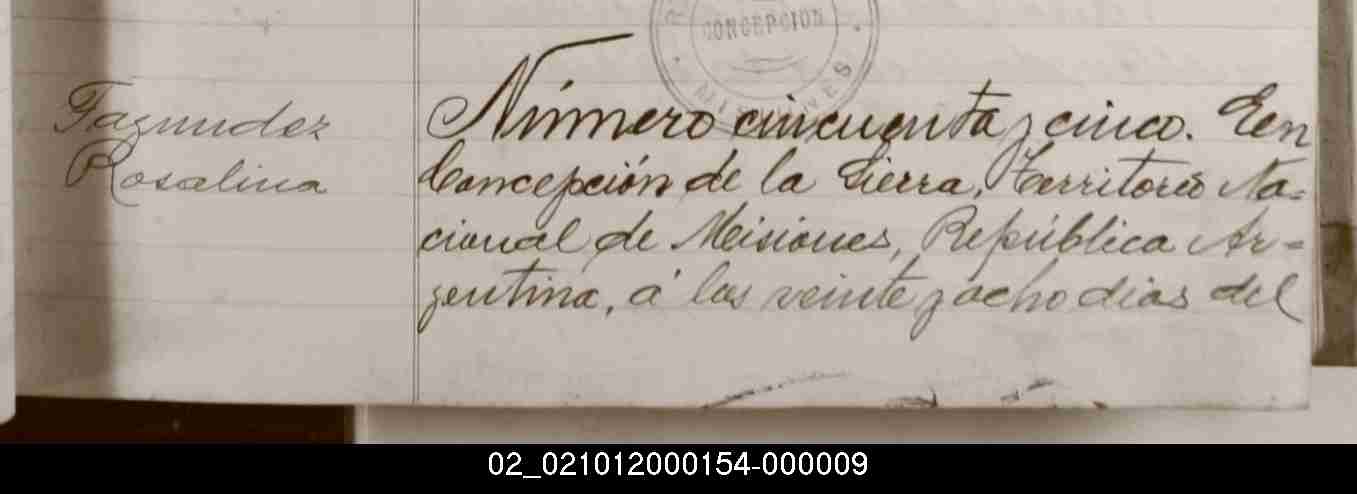 CONCEPCION
MISIONES
Fagundez
Rosalina
Número cincuenta y cinco. En
Concepción de la Sierra, Territorio Na=
cional de Misiones, República Ar=
gentina, á los veinte y ocho dias del
02_021012000154-000009